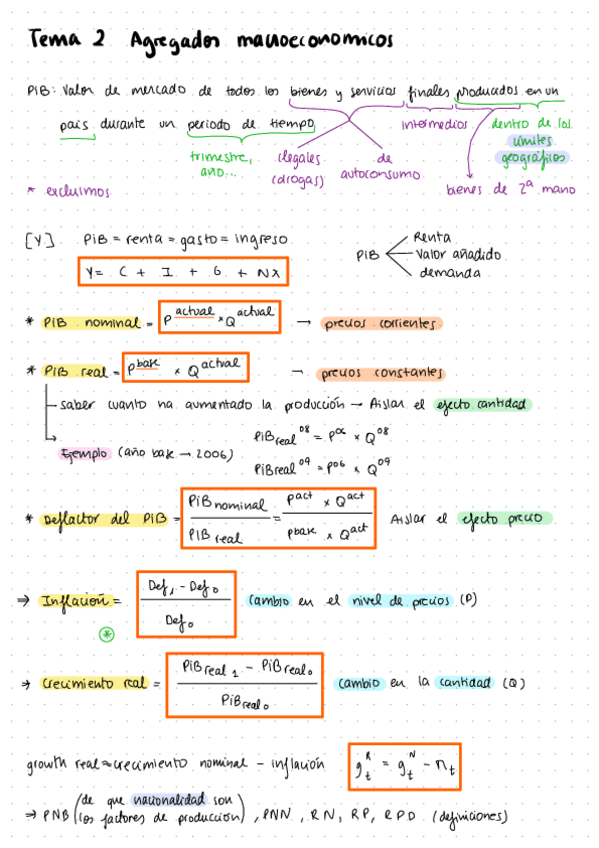 Tema 2 Agregados macroeconomicos
PiB: Valor de mercado de todos los bienes y servicios finales producidos en un
país durante un periodo de tiempo
intermedios
dentro de los
límites
geográficos
trimestre,
año...
ilegales
(drogas)
de
autoconsumo
bienes de 2ª mano
* excluimos
[Y] PiB = renta = gasto = ingreso
Y = C + I + G + NX
PiB
Renta
Valor añadido
demanda
* PiB nominal = P^actual × Q^actual → precios corrientes
* PiB real = P^base × Q^actual → precios constantes
saber cuanto ha aumentado la producción → Aislar el efecto cantidad
Ejemplo (año base → 2006)
PiB real^08 = P^06 × Q^08
PiB real^09 = P^06 × Q^09
* Deflactor del PiB = PiB nominal / PIB real = P^act × Q^act / P^base × Q^act Aislar el efecto precio
⇒ Inflación = Def₁ - Def₀ / Def₀ cambio en el nivel de precios (P)
*
→ Crecimiento real = PiB real 1 - PiB real 0 / PiB real 0 cambio en la cantidad (Q)
growth real ≈ crecimiento nominal - inflación g_t^R = g_t^N - π_t
→ PNB (de que nacionalidad son los factores de produccion), PNN, RN, RP, RPD (definiciones)